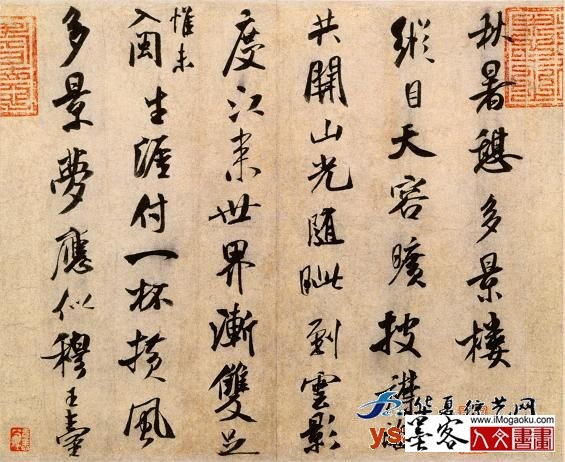 秋暑憩多景樓
縱目天容曠披襟海
共開山光隨眦到雲影
度江來世界漸雙足
惟未
入閩生涯付一杯橫風
多景夢應似穆王臺
华夏综艺网
www.iMogaoku.com
墨客
人文書畫